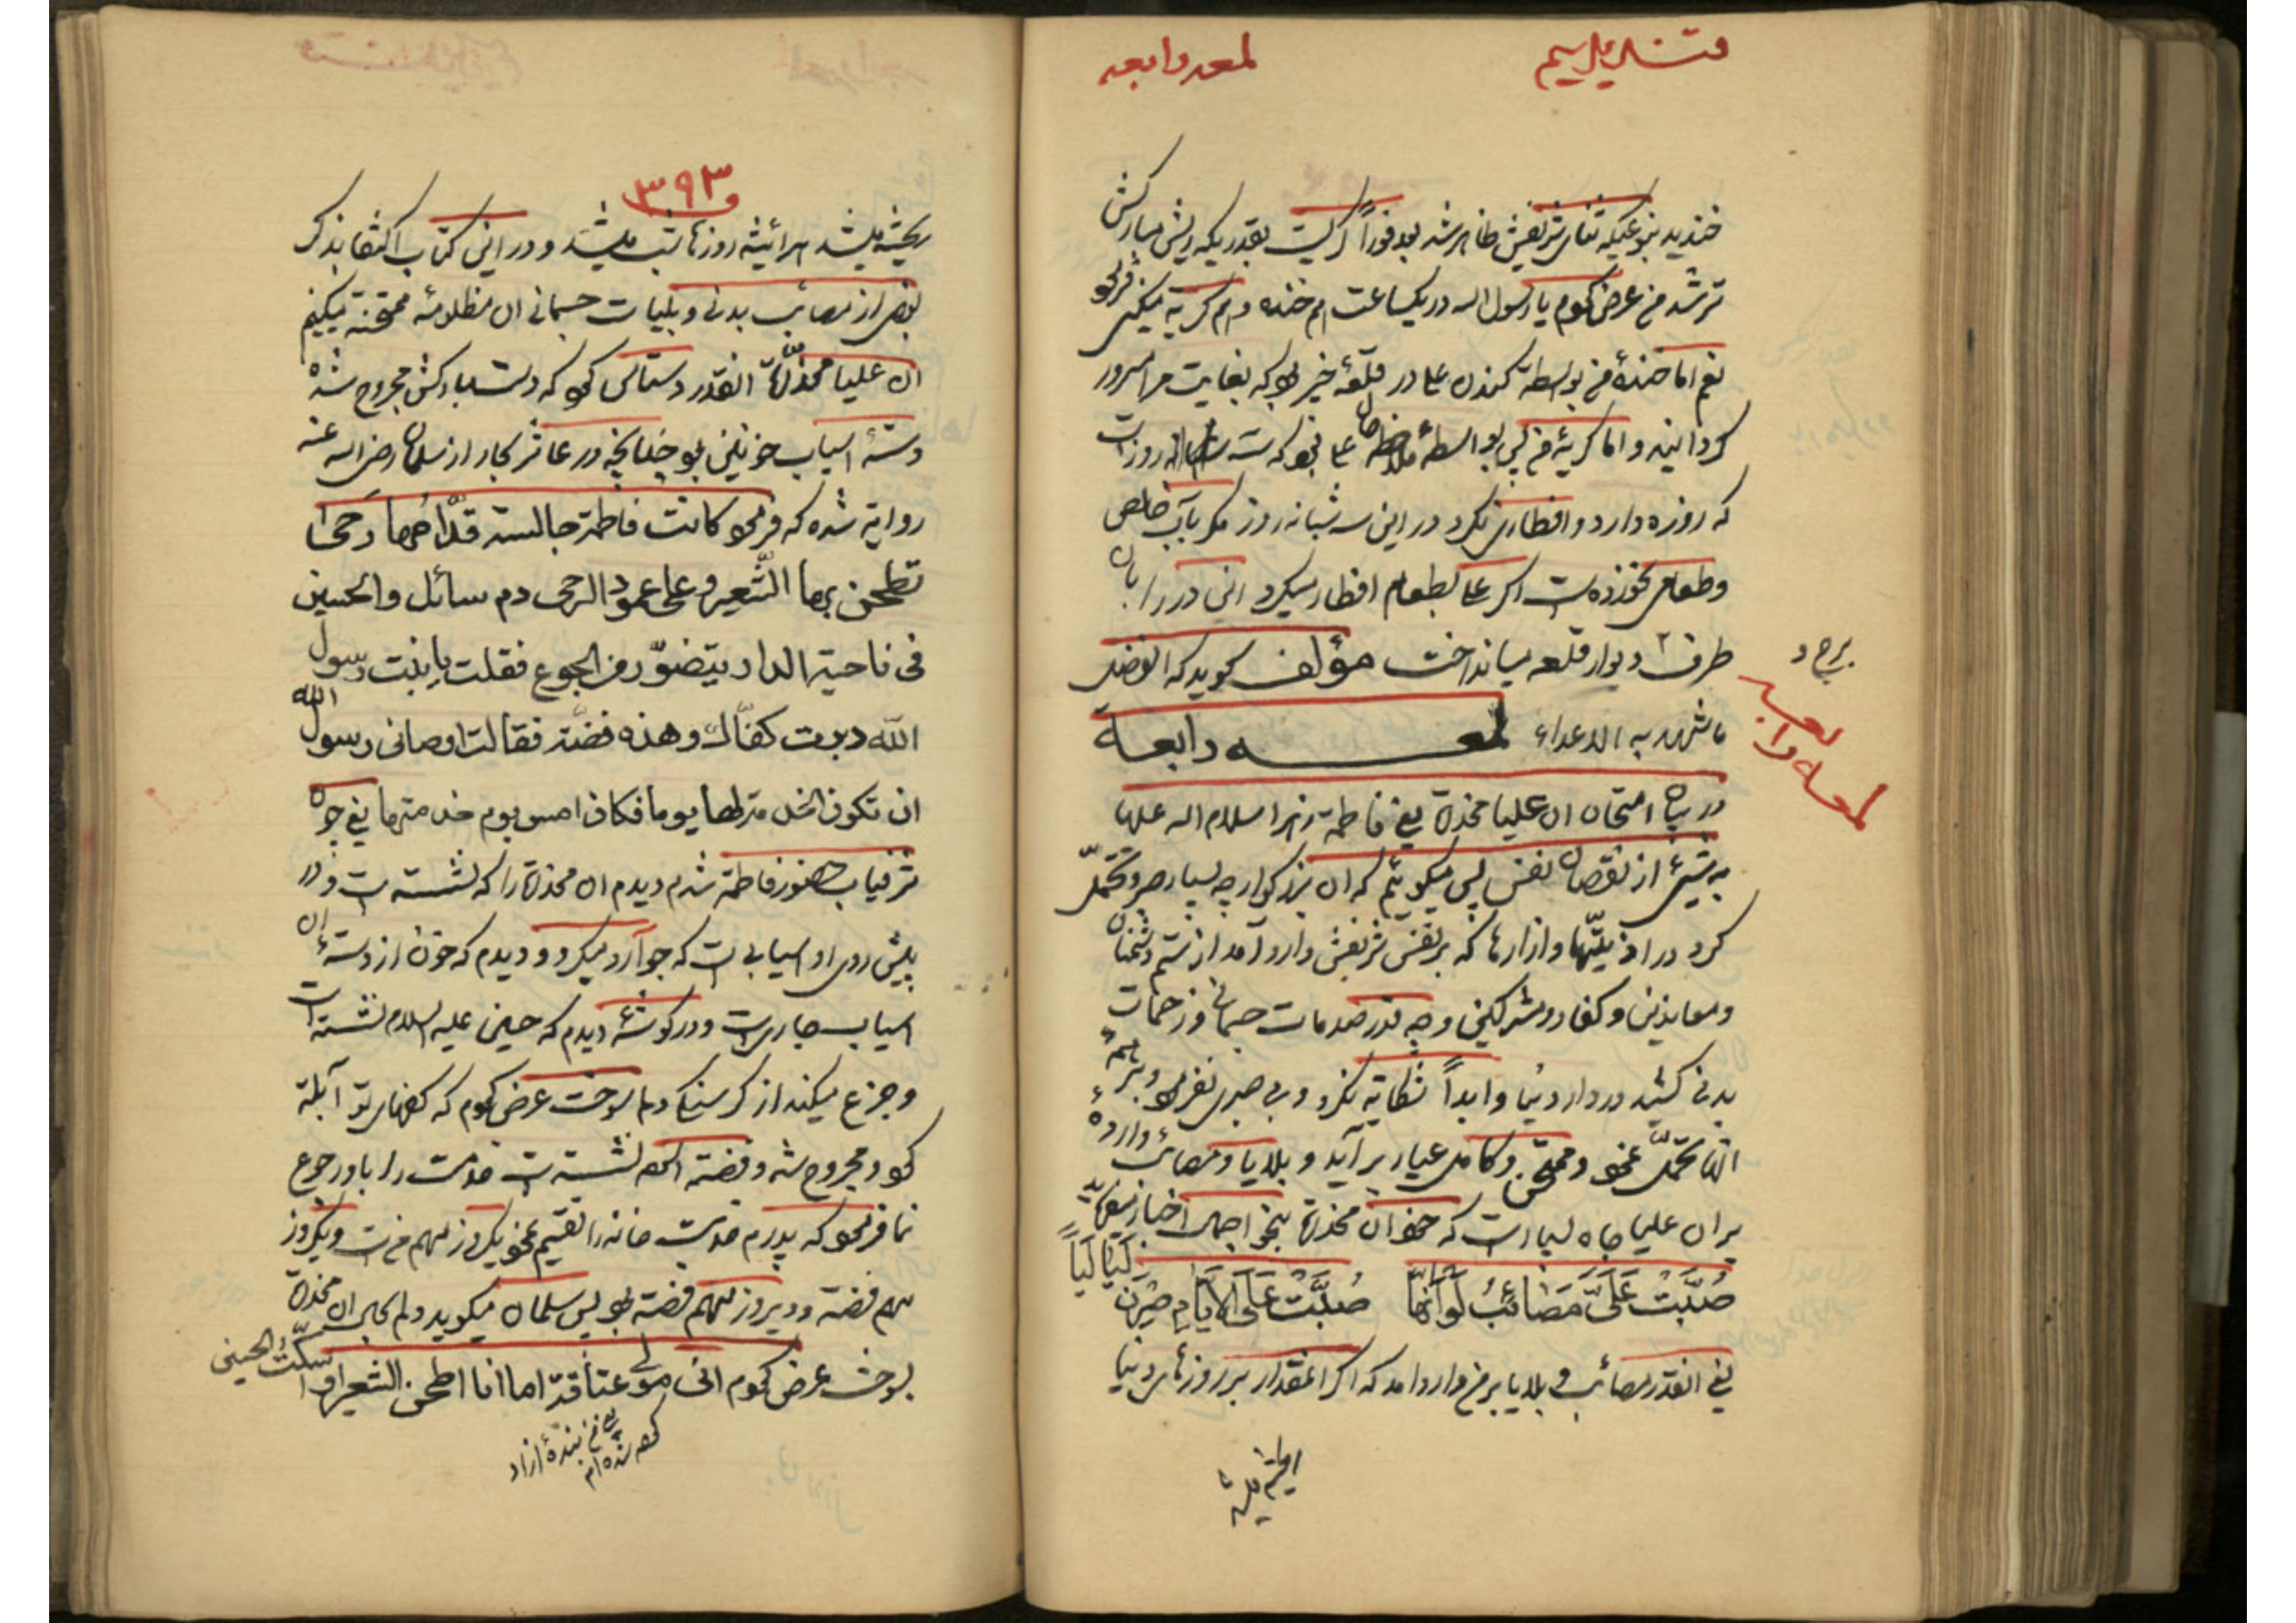 لمعه رابعه
خندید بنوعیکه ثنای شریفش ظاهر شد بعد فوراً گریست بقدریکه ریش مبارکش
تر شد من عرض یا رسول اله در یکساعت هم خنده و هم گریه میکنی
نعم اما خندهٔ من بواسطه کندن علی در قلعهٔ خیبر که بغایت مرا مسرور
گردانید و اما گریهٔ من بواسطهٔ ملاحظه علی که سه روز است
که روزه دارد و افطاری نکرد در این سه شبانه روز مگر بآب خالص
و طعامی نخورده است اگر علی بطعام افطار میکرد این در را بان
طرف دیوار قلعه میانداخت مؤلف گوید که الفضل
ما شهد به الاعداء لمعه رابعة
لمعه رابعه
در بیان امتحان ان علیا مخدره یعنی فاطمه زهرا سلام اله علیها
به شیئی از نقصان نفس پس میگوئیم که ان بزرگوار چه بسیار صبر و تحمّل
کرد در اذیّتها و ازارها که بر نفس شریفش وارد آمد از ستم دشمنان
و معاندین و کفار و مشرکین و چه قدر صدمات جسمانی و زحمات
بدنی کشید در دار دنیا و ابداً شکایه نکرد و بی صبری نفرمود و بر همهٔ
انها تحمّل نمود و ممتحن و کامل عیار بر آید و بلایا و مصائب واردهٔ
بر ان علیا جاه بسیار است که خود ان مخدره بنحو اجمال اخبار میفرماید
صُبَّتْ عَلَیَّ مَصَائِبُ لَوْ اَنَّهَا صُبَّتْ عَلَی الاَیَّامِ صِرْنَ لَیَالِیَاً
یعنی انقدر مصائب و بلایا بر من وارد امد که اگر انمقدار بر روزهای دنیا
۳۹۳
ریخته میشد هرائینه روزها شب میشد و در این کتاب اکتفا بذکر
بعضی از مصائب بدنی و بلیات جسمانی ان مظلومهٔ ممتحنه میکنیم
ان علیا مخدّره انقدر دستاس که دست مبارکش مجروح شده
دستهٔ اسیاب خونین بود چنانچه در عاشر بحار از سلمان رضی اله عنه
روایة شده که فرمود کانت فاطمة جالسة قدّامها رحیٰ
تطحن بها الشّعیر و علی عمود الرحی دم سائل والحسین
فی ناحیة الدار یتضوّر من الجوع فقلت یا بنت رسول
الله دبرت کفّاك و هذه فضّة فقالت اوصانی رسول الله
ان تکون الخدمة لها یوما فکان امس یوم خدمتها یعنی چون
شرفیاب حضور فاطمه شدم دیدم ان مخدره را که نشسته است و در
پیش روی او اسیابی است که جو آرد میکرد و دیدم که خون از دستهٔ ان
اسیاب جاری است و در گوشهٔ دیدم که حسین علیه السلام نشسته است
و جزع میکند از گرسنگی دلم سوخت عرض که کفهای تو آبله
و مجروح شده و فضه نشسته است خدمت را باو رجوع
نما فرمود که پدرم خدمت خانه را تقسیم نمود یکروز سهم من است و یکروز
سهم فضه و دیروز سهم فضه بود پس سلمان میگوید دلم بحال ان مخدره
سوخت عرض انی مولی عتاقة اما انا اطحن الشعیر او اسکّت الحسین
یعنی من بندهٔ ازاد
شده‌ام